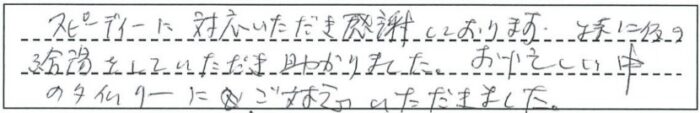 スピーディーに対応いただき感謝しております。特に仮の
給湯をしていただき助かりました。お忙しい中
のタイムリーにご対応いただきました。